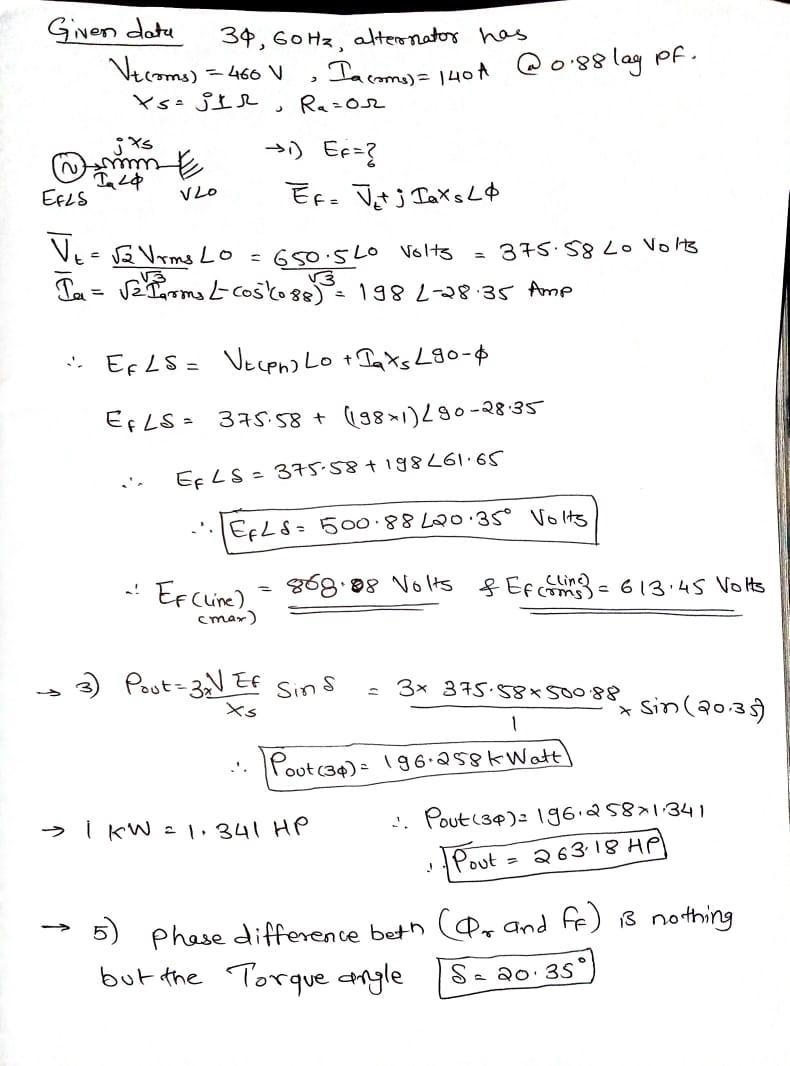 Given data 3Φ, 60Hz, alternator has
Vt(rms) = 460 V , Ia(rms) = 140A @ 0.88 lag pf.
Xs = j1Ω , Ra = 0Ω
jXs
Ia∠Φ
Ef∠δ V∠0
→ i) Ef = ?
Ēf = V̄t + j IaXs∠Φ
V̄t = √2 Vrms∠0 / √3 = 650.5∠0 / √3 Volts = 375.58∠0 Volts
Īa = √2 Iarms∠-cos⁻¹(0.88) = 198∠-28.35 Amp
∴ Ef∠δ = Vt(ph)∠0 + IaXs∠90-Φ
Ef∠δ = 375.58 + (198×1)∠90-28.35
∴ Ef∠δ = 375.58 + 198∠61.65
∴ Ef∠δ = 500.88∠20.35° Volts
∴ Ef(Line)(max) = 868.08 Volts & Ef(Line)(rms) = 613.45 Volts
→ 3) Pout = 3×V Ef / Xs Sin δ = 3× 375.58×500.88 / 1 × Sin(20.35)
∴ Pout(3Φ) = 196.258 kWatt
→ 1 KW = 1.341 HP ∴ Pout(3Φ) = 196.258×1.341
∴ Pout = 263.18 HP
→ 5) Phase difference betn (Φr and ff) is nothing
but the Torque angle δ = 20.35°